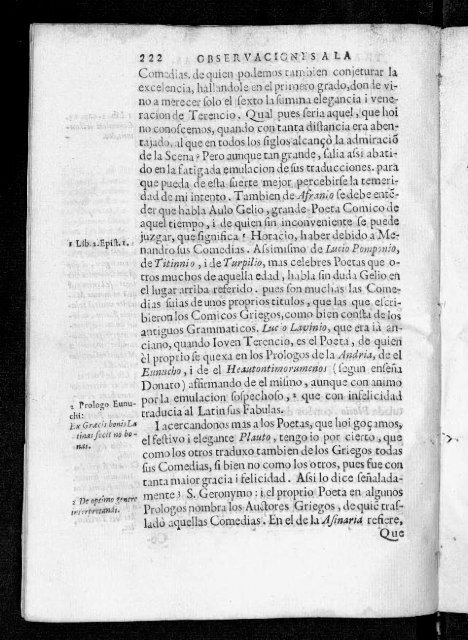 222 OBSERVACIONES A LA
Comedias, de quien podemos tambien conjeturar la
excelencia, hallandole en el primero grado, don de vi-
no a merecer solo el sexto la summa elegancia i vene-
racion de Terencio. Qual pues seria aquel, que hoi
no conoscemos, quando con tanta distancia era aben-
tajado, al que en todos los siglos alcançò la admiraciõ
de la Scena? Pero aunque tan grande, salia assi abati-
do en la fatigada emulacion de sus traducciones. para
que pueda de esta suerte mejor percebirse la temeri-
dad de mi intento. Tambien de Afranio se debe entẽ-
der que habla Aulo Gelio, grande Poeta Comico de
aquel tiempo, i de quien sin inconveniente se puede
juzgar, que significa ¹ Horacio, haber debido a Me-
nandro sus Comedias. Assimismo de Lucio Pomponio,
de Titinnio, i de Turpilio, mas celebres Poetas que o-
tros muchos de aquella edad, habla sin duda Gelio en
el lugar arriba referido. pues son muchas las Come-
dias suias de unos proprios titulos, que las que escri-
bieron los Comicos Griegos, como bien consta de los
antiguos Grammaticos. Lucio Lavinio, que era ià an-
ciano, quando Ioven Terencio, es el Poeta, de quien
èl proprio se quexa en los Prologos de la Andria, de el
Eunucho, i de el Heautontimorumenos (segun enseña
Donato) affirmando de el mismo, aunque con animo
por la emulacion sospechoso, ² que con infelicidad
traducia al Latin sus Fabulas.
I acercandonos mas a los Poetas, que hoi goçamos,
el festivo i elegante Plauto, tengo io por cierto, que
como los otros traduxo tambien de los Griegos todas
sus Comedias, si bien no como los otros, pues fue con
tanta maior gracia i felicidad. Assi lo dice señalada-
mente ³ S. Geronymo: i el proprio Poeta en algunos
Prologos nombra los Auctores Griegos, de quiẽ tras-
ladò aquellas Comedias. En el de la Asinaria refiere,
Que
1 Lib. 2. Epist. 1.
2 Prologo Eunu-
chi:
Ex Græcis bonis La
tinas fecit no bo-
nas.
3 De optimo genere
interpretandi.